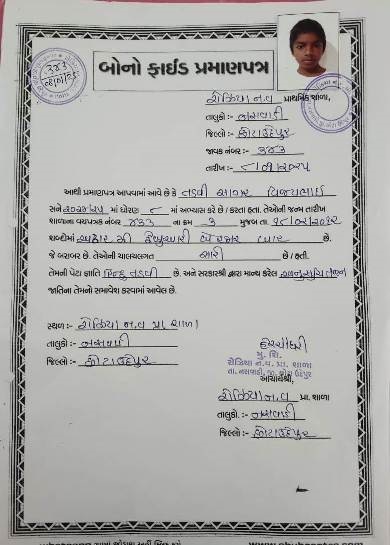 બોનો ફાઈડ પ્રમાણપત્ર
રોઝિયા ન.વ પ્રાથમિક શાળા,
તાલુકો :- નસવાડી
જિલ્લો :- છોટાઉદેપુર
જાવક નંબર :- ૩૪૩
તારીખ :-
આથી પ્રમાણપત્ર આપવામાં આવે છે કે તડવી
સને ૨૦૨૪/૨૫ માં ધોરણ ૮ માં અભ્યાસ કરે છે / કરતા હતા. તેઓની જન્મ તારીખ
શાળાના વયપત્રક નંબર ૨૩૩ ના ક્રમ ૩ મુજબ તા. ૧૮/૦૨/૨૦૧૨
શબ્દોમાં અઢાર મી ફેબ્રુઆરી બે હજાર બાર છે.
જે બરાબર છે. તેઓની ચાલચલગત સારી છે / હતી.
તેમની પેટા જ્ઞાતિ હિન્દુ તડવી છે. અને સરકારશ્રી દ્વારા માન્ય કરેલ અનુસુચિત
જાતિના તેમનો સમાવેશ કરવામાં આવેલ છે.
સ્થળ :- રોઝિયા ન.વ પ્રા શાળા
તાલુકો :- નસવાડી
જિલ્લો :- છોટાઉદેપુર
મુ. શિ.
રોઝિયા ન.વ. પ્રા. શાળા
તા. નસવાડી, જી. છોટા ઉદેપુર
આચાર્યશ્રી,
રોઝિયા ન.વ પ્રા. શાળા
તાલુકો. :- નસવાડી
જિલ્લો :- છોટાઉદેપુર